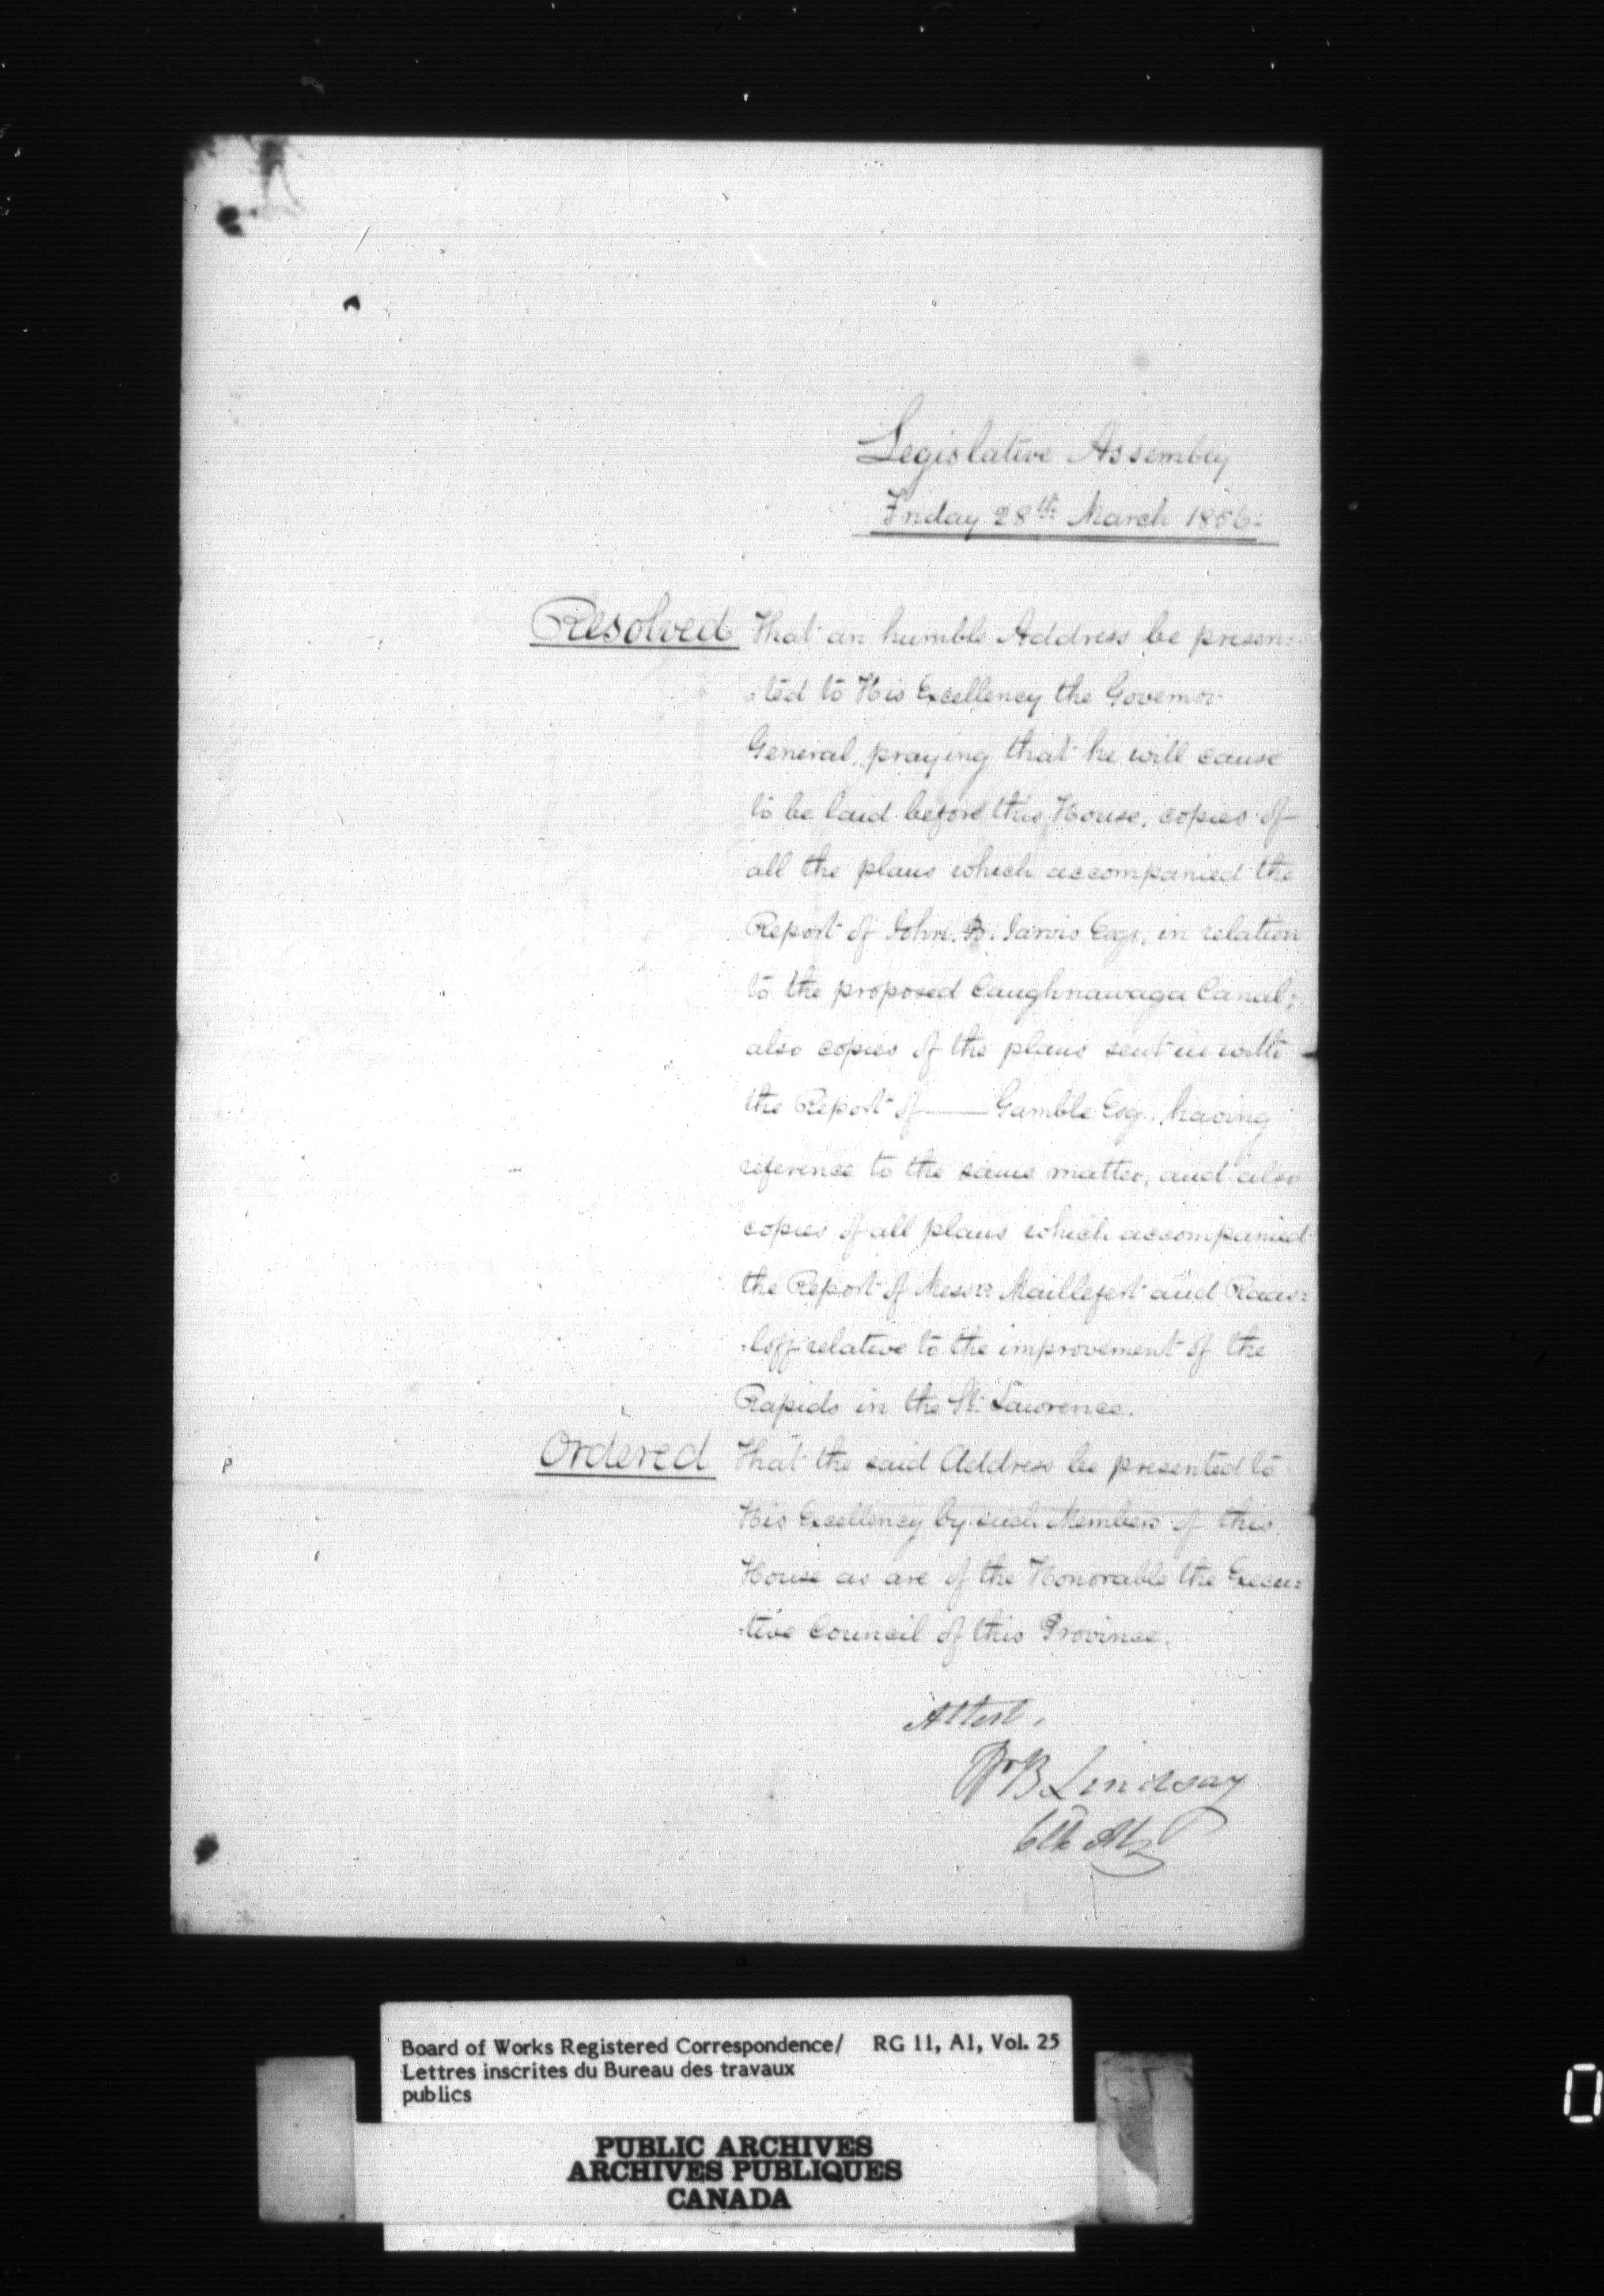 Legislative Assembly
Friday 28th March 1856:
Resolved That an humble Address be presen:
:ted to His Excellency the Governor
General, praying that he will cause
to be laid before this House, copies of
all the plans which accompanied the
Report of John. B. Jarvis Esqr. in relation
to the proposed Caughnawaga Canal;
also copies of the plans sent in with
the Report of —— Gamble Esq., having
reference to the same matter, and also
copies of all plans which accompanied
the Report of Messrs Maillefert and Raas:
:loff relative to the improvement of the
Rapids in the St. Lawrence.
Ordered That the said Address be presented to
His Excellency by such Members of this
House as are of the Honorable the Execu:
:tive Council of this Province.
Attest,
Wm B Lindsay
Clk Assy
Board of Works Registered Correspondence/ RG 11, A1, Vol. 25
Lettres inscrites du Bureau des travaux
publics
PUBLIC ARCHIVES
ARCHIVES PUBLIQUES
CANADA